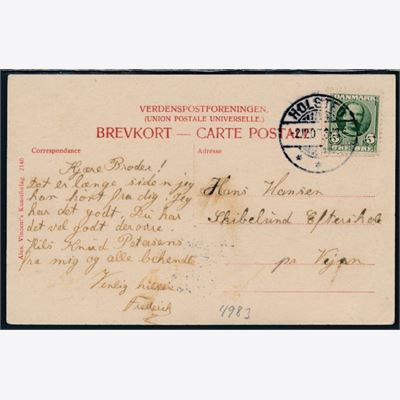 VERDENSPOSTFORENINGEN.
(UNION POSTALE UNIVERSELLE.)
BREVKORT — CARTE POSTALE
Correspondance
Adresse
HOLSTED
DANMARK
5 5
ØRE ØRE
Alex. Vincent's Kunstforlag. 2140
Kjære Broder!
Det er længe siden jeg
har hørt fra dig. Jeg
har det godt. Du har
det vel godt derovre.
Hils Knud Petersens
fra mig og alle bekendte
Venlig hilsen
Frederich
Hans Hansen
Skibelund Efterskole
pr Vejen
4983